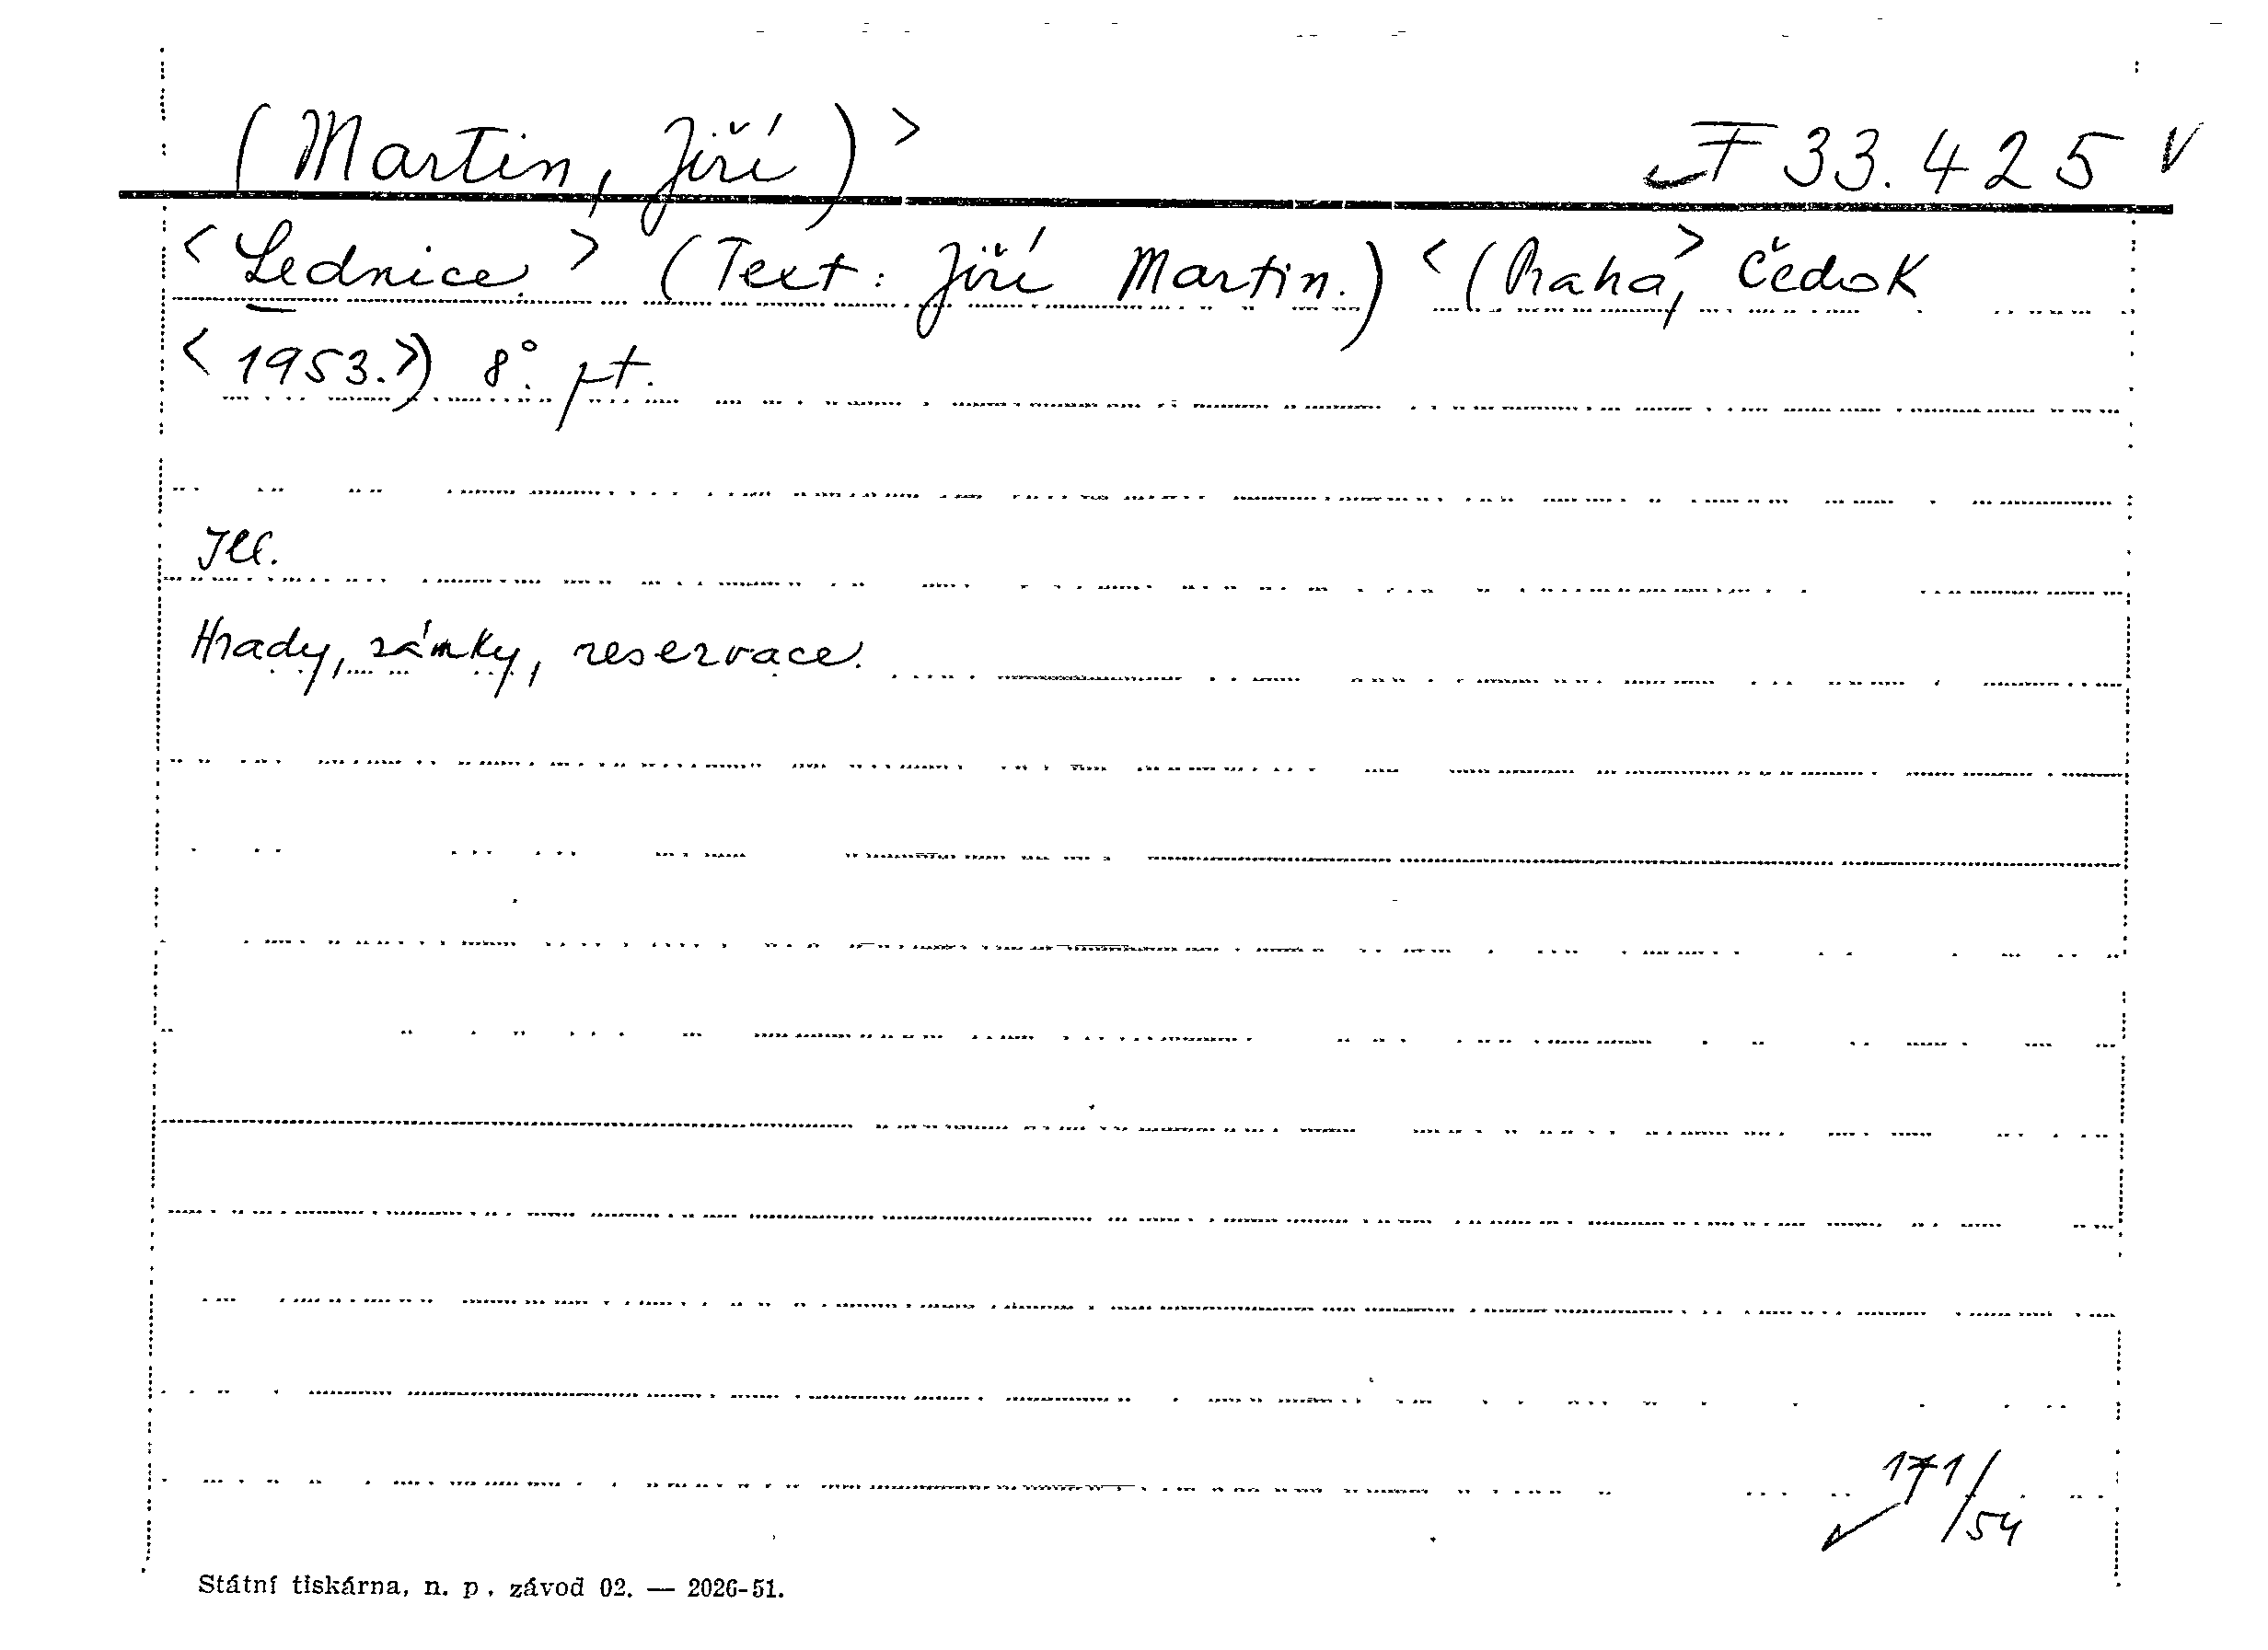 (Martin, Jiří) > F 33.425 V
< Lednice. > (Text: Jiří Martin.) < (Praha, > Čedok
< 1953. >) 8°. pt.
Ill.
Hrady, zámky, reservace.
171/54
Státní tiskárna, n. p. závod 02. — 2026-51.